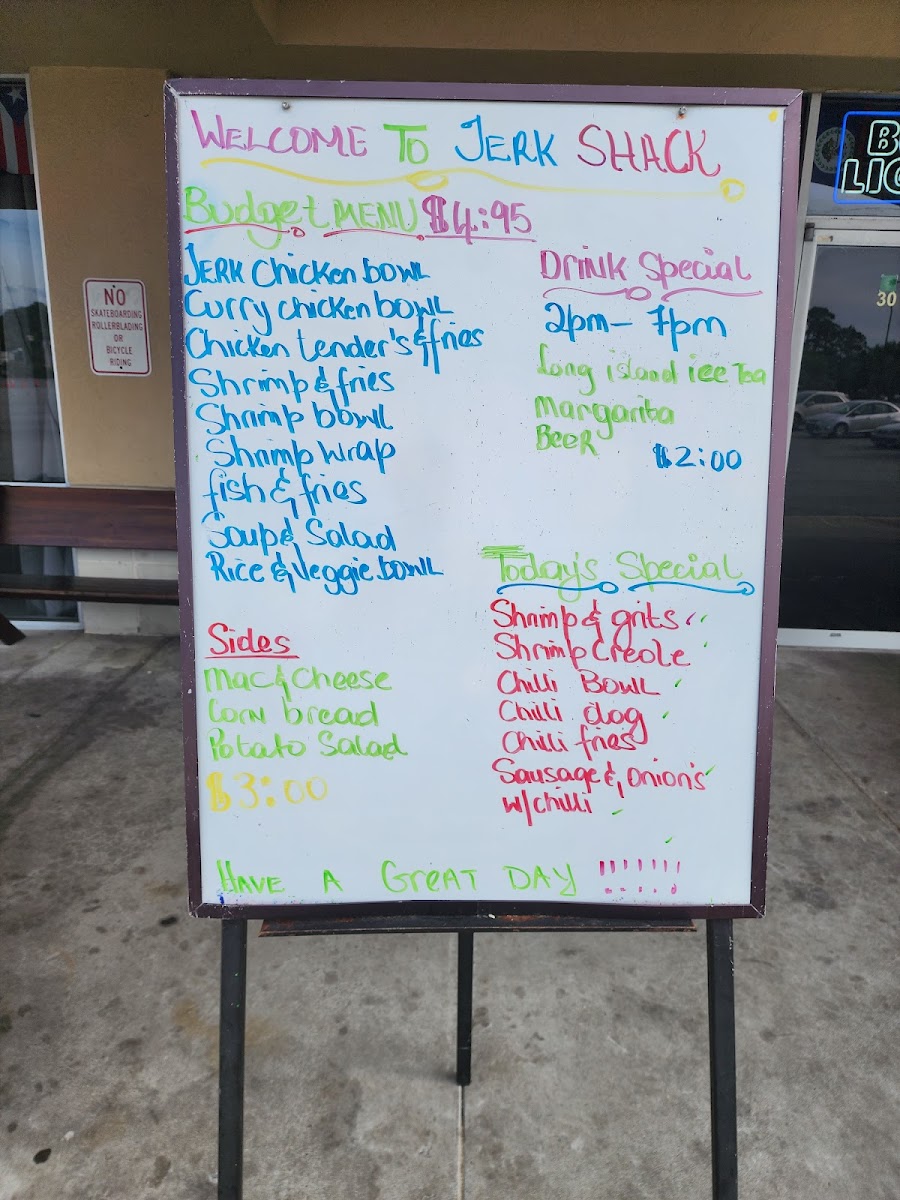 WELCOME TO JERK SHACK
Budget MENU $4:95
JERK Chicken bowl
Curry chicken bowl
Chicken tender's & fries
Shrimp & fries
Shrimp bowl
Shrimp Wrap
fish & fries
Soup & Salad
Rice & Veggie bowl
Sides
Mac & Cheese
Corn bread
Potato Salad
$3:00
Drink Special
2pm - 7pm
Long island ice Tea
Margarita
Beer
$2:00
Today's Special
Shrimp & grits
Shrimp Creole
Chilli Bowl
Chilli dog
Chilli fries
Sausage & onion's
w/chilli
HAVE A GreAT DAY !!!!!!!
NO
SKATEBOARDING
ROLLERBLADING
OR
BICYCLE
RIDING
30